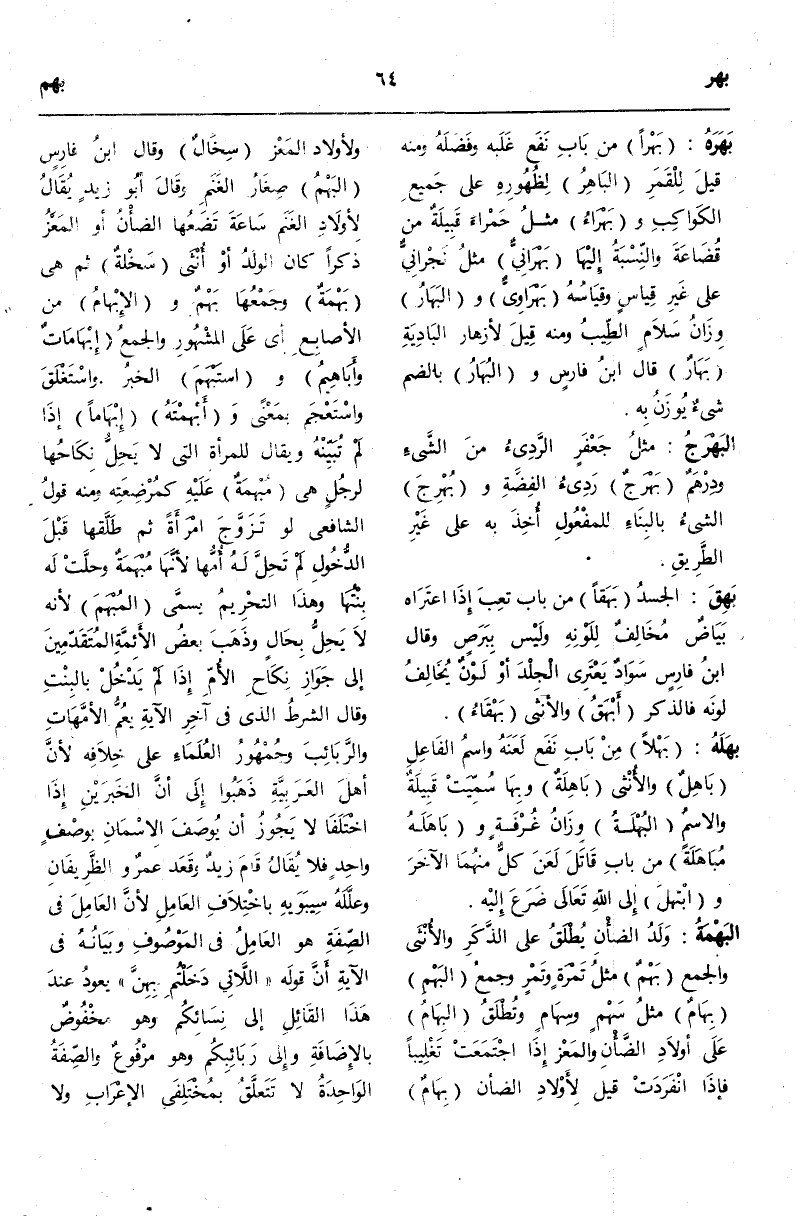 بهر ٦٤ بهم
بَهَرَهُ : ( بَهْراً ) من بَابِ نَفَع غَلَبه وفَضَلَهُ ومنه
قيلَ لِلْقَمَرِ ( البَاهِرُ ) لِظُهُورِهِ على جَميعِ
الكَوَاكِبِ و ( بَهْرَاءُ ) مثـلُ حَمْراءَ قَبِيلَةٌ من
قُضَاعَةَ والنِّسْبَةُ إِلَيْهَا ( بَهْرَانِيٌّ ) مثلُ نَجْرانِيٌّ
على غَيرِ قِياسٍ وقِيَاسُهُ ( بَهْرَاوِىٌّ ) و ( البَهَارُ )
وِزَانُ سَلَامٍ الطِّيبُ ومنه قِيلَ لأزهارِ البَادِيَةِ
( بَهَارٌ ) قال ابنُ فارسٍ و ( البُهَارُ ) بالضم
شىءٌ يُوزَنُ بِه .
البَهْرَجُ : مثلُ جَعْفَرٍ الرَّدِىءُ منَ الشَّىءِ
ودِرْهَمٌ ( بَهْرَجٌ ) رَدِىءُ الفِضَّةِ و ( بُهْرِجَ )
الشىءُ بالبِنَاءِ للمفْعُولِ أُخِذَ به على غَيْرِ
الطَّرِيقِ .
بَهِقَ : الجَسدُ ( بَهَقاً ) من باب تعِبَ إِذَا اعتَرَاه
بَيَاضٌ مُخَالِفٌ لِلَوْنِهِ ولَيْس بِبَرَصٍ وقال
ابنُ فارِسٍ سَوَادٌ يَعْتَرِى الْجِلْدَ أوْ لَـوْنٌ يُخَالِفُ
لونَه فالذكر ( أَبْهَقُ ) والأنثَى ( بَهْقَاءُ ) .
بهَلَهُ : ( بَهْلاً ) مِنْ بَابِ نَفَع لَعَنَهُ واسمُ الفَاعلِ
( بَاهِلٌ ) والأُنْثَى ( بَاهِلَةٌ ) وبِهَا سُمِّيَت قَبِيلَةٌ
والاسمُ ( البُهْلَـةُ ) وِزَانُ غُـرْفَـةٍ و ( بَاهَلَـهُ
مُبَاهَلَةً ) من بابِ قَاتَلَ لَعَنَ كلٌّ منهُمَا الآخرَ
و ( ابْتهلَ ) إِلى اللهِ تَعَالَى ضَرَعَ إِلَيْه .
البَهْمَةُ : وَلَدُ الضأنِ يُطْلَقُ على الذَّكَرِ والأُنْثَى
والجمع ( بَهْمٌ ) مثلُ تَمْرَةٍ وتَمْرٍ وجمعُ ( البَهْمِ )
( بِهَامٌ ) مثلُ سَهْمٍ وسِهَامٍ وتُطْلَقُ ( البِهَامُ )
عَلَى أولادِ الضَّأْنِ والمَعْزِ إِذَا اجْتَمَعَتْ تَغْلِيباً
فإِذَا انْفَرَدَتْ قيل لِأَوْلَادِ الضأن ( بِهَامٌ )
ولأولاد المَعْز ( سِخَالٌ ) وقال ابنُ فارِسٍ
( البَهْمُ ) صِغَارُ الغَنَمِ وقَالَ أبُو زيدٍ يُقَالُ
لأولَادِ الغَنَمِ ساعَةَ تَضَعُها الضأْنُ أو المَعْزُ
ذكراً كان الولَدُ أوْ أُنْثَى ( سَخْلَةٌ ) ثم هى
( بَهْمَةٌ ) وجَمْعُهَا بَهْمٌ و ( الإِبْهَامُ ) من
الأصابِعِ أُنْثَى عَلَى المشْهُورِ والجمعُ ( إِبْهَامَاتٌ
وأَبَاهِيمُ ) و ( استَبْهَمَ ) الخبرُ واستَغْلَقَ
واسْتَعْجَم بمَعْنًى وَ ( أَبْهمْتُهُ ) ( إِبْهَاماً ) إذَا
لَمْ تُبَيِّنْهُ ويقال للمرأة التى لا يَحِلُّ نِكَاحُها
لرجلٍ هى ( مُبْهَمَةٌ ) عَلَيْهِ كمُرْضِعَتِه ومنه قولُ
الشافعى لو تَـزَوَّجَ امْرَأَةً ثم طَلَّقها قَبْلَ
الدُّخُولِ لَمْ تَحِلَّ لَـهُ أُمُّها لأنَّهَا مُبْهَمَةٌ وحلَّتْ له
بِنْتُهَا وهذَا التحْرِيمُ يسمَّى ( المُبْهَمَ ) لأنه
لاَ يَحِلُّ بِحَالٍ وذَهَبَ بعضُ الأَئِمَّةِ المُتَقَدِّمِينَ
إِلى جَوَازِ نِكَاحِ الأُمّ إِذَا لَمْ يَدْخُلْ بِالبِنْتِ
وقال الشرطُ الذى فى آخِرِ الآيَةِ يعُمُّ الأمَّهَاتِ
والرَّبَائِبَ وجُمْهُورُ العُلَمَاءِ على خِلَافِه لأنَّ
أهلَ العَـرَبِيَّةِ ذَهَبُوا إِلَى أنَّ الخَبَرَيْنِ إِذَا
اختَلَفَا لَا يَجُوزُ أن يُوصَفَ الِاسْمَانِ بوصْفٍ
واحِدٍ فلا يُقَالُ قَامَ زيدٌ وقَعَد عمرٌو الظَّرِيفَانِ
وعلَّلَهُ سِيبَوَيهِ باخْتِلَافِ العَامِلِ لأنَّ العَامِلَ فى
الصِّفَةِ هو العَامِلُ فى المَوْصُوفِ وبَيَانُـهُ فى
الآيَةِ أنَّ قولَه « اللَّاتِي دَخَلْتُمْ بِهِنَّ » يعودُ عندَ
هَذَا القَائِلِ إلى نِسَائِكُم وهو مخْفُوضٌ
بالإِضَافَةِ وإِلى رَبَائِبِكُم وهو مرْفُوعٌ والصِّفَةُ
الوَاحِدَةُ لا تَتَعلَّقُ بمُخْتَلِفَىِ الإعْرَابِ ولا